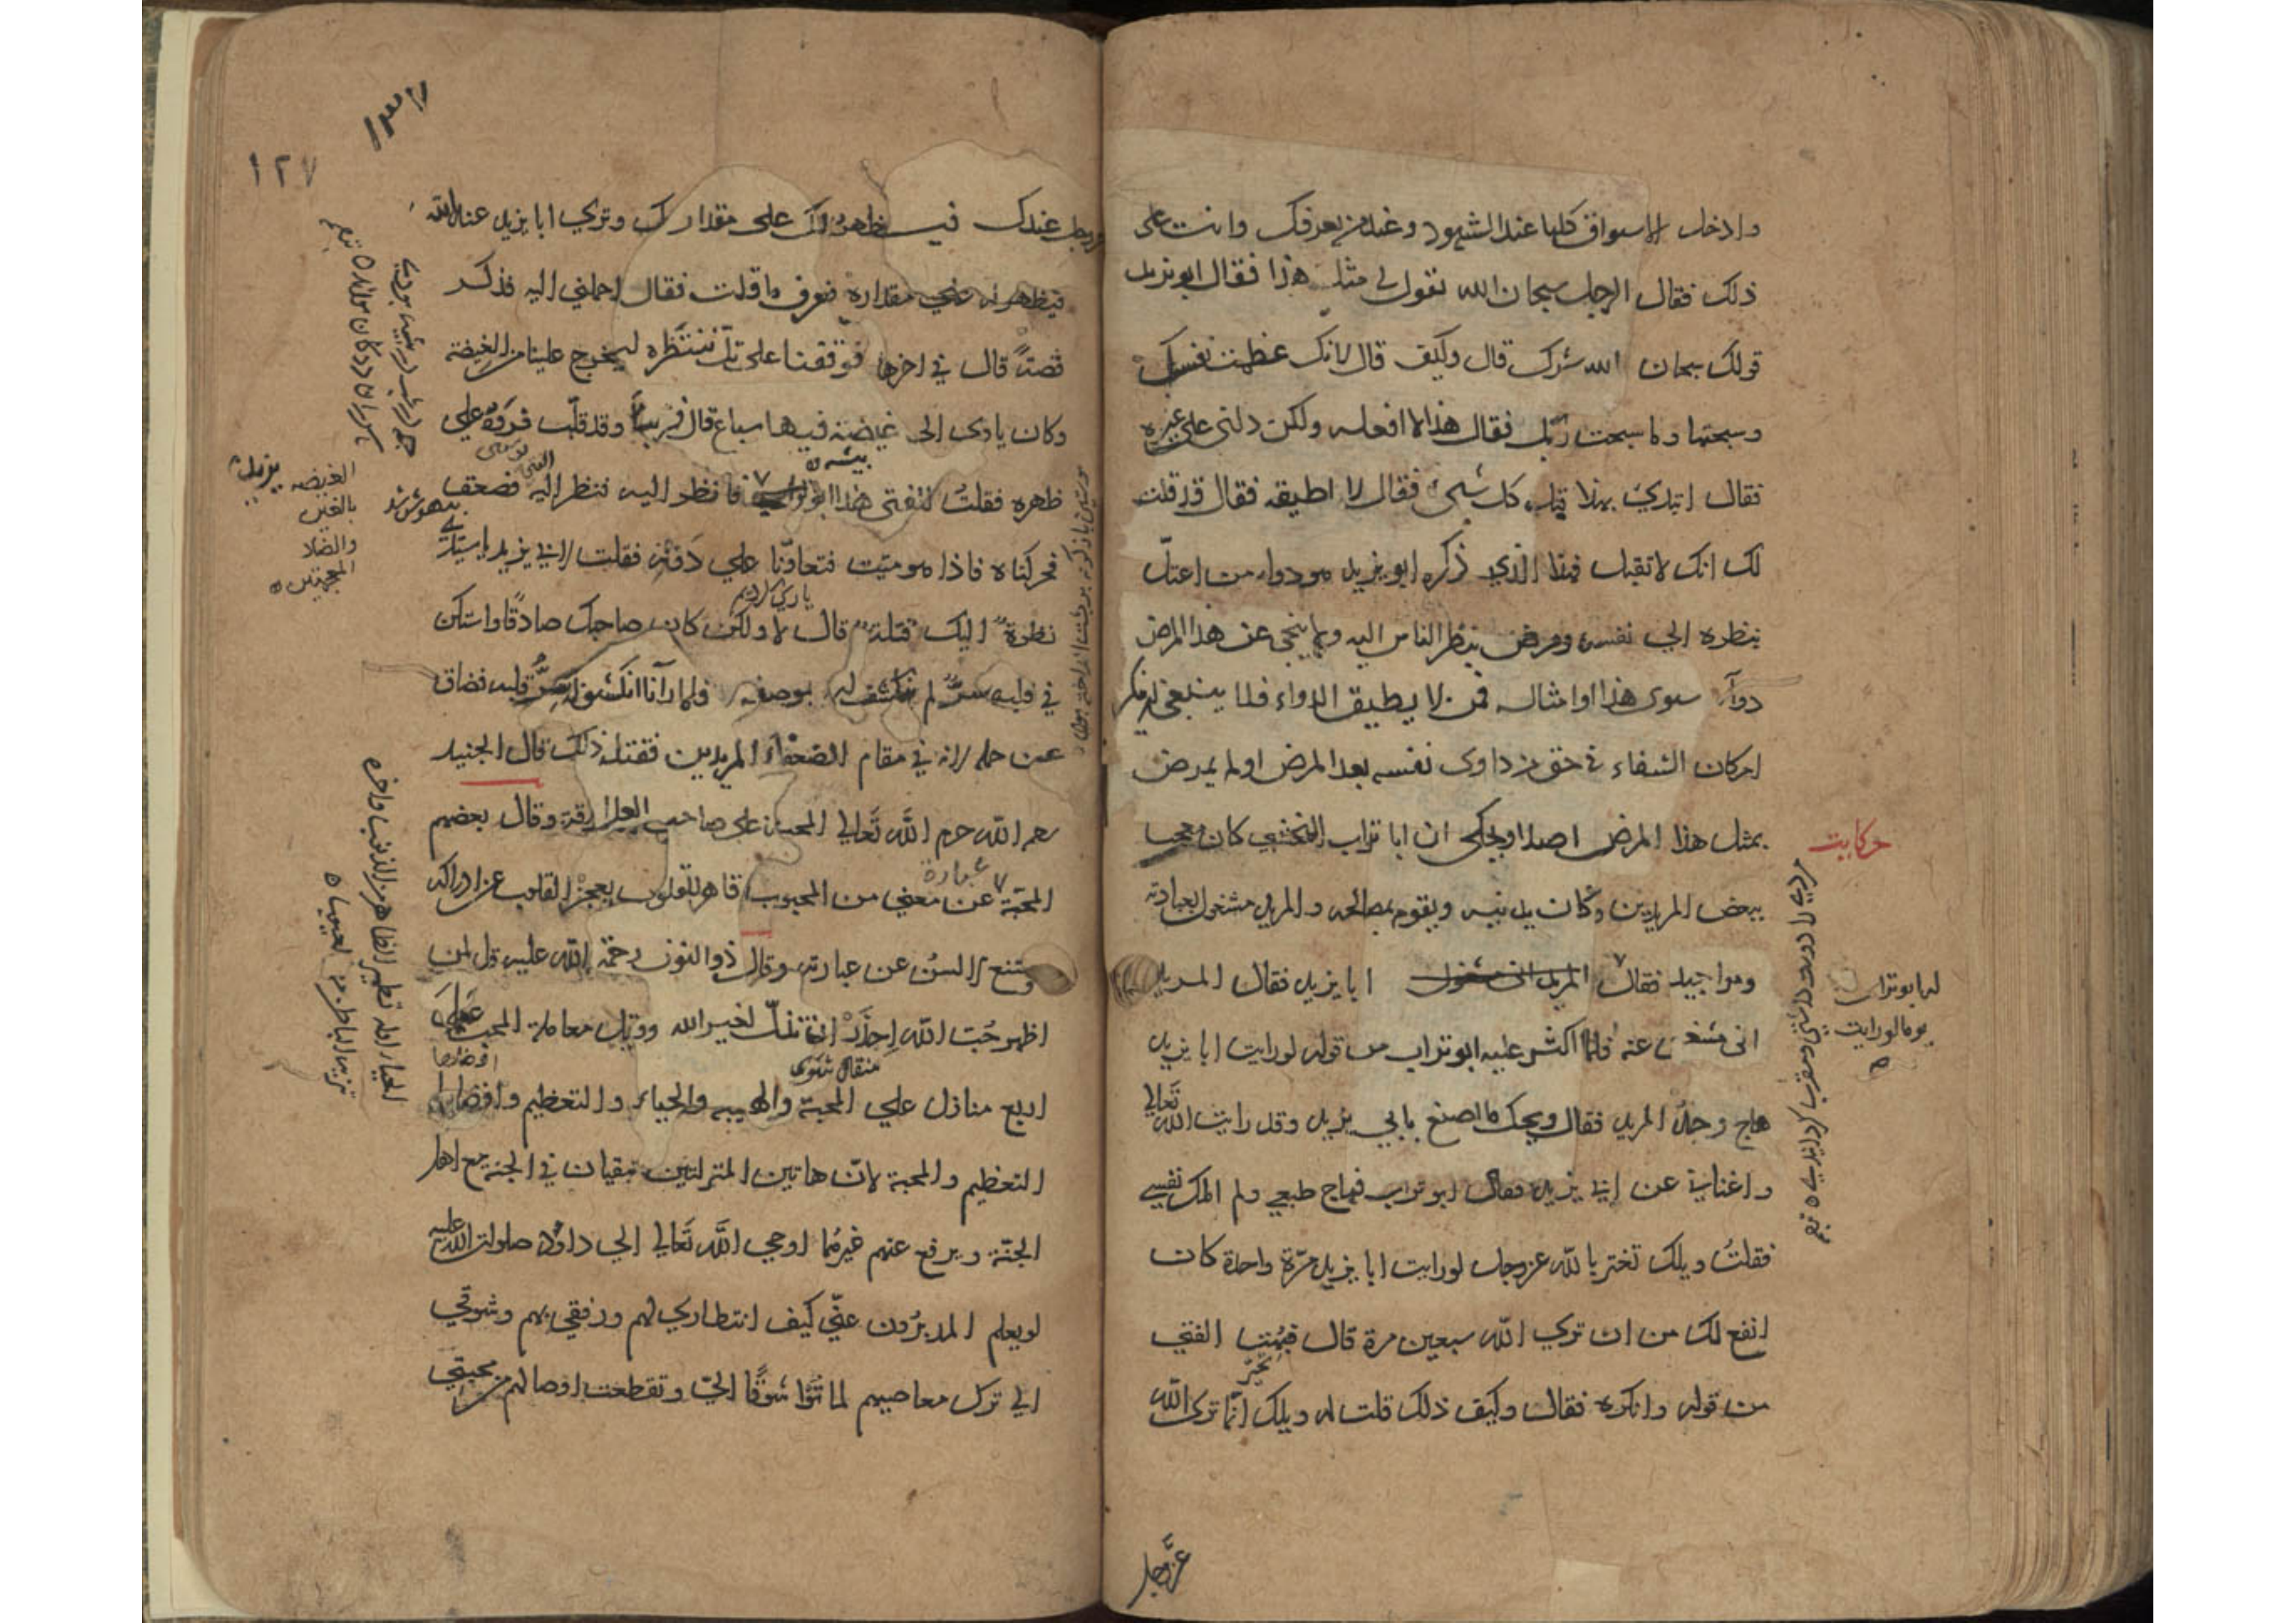 وادخل الاسواق كلها عند الشهود وعند من يعرفك وانت على
ذلك فقال الرجل سبحان الله تقول لي مثل هذا فقال ابو يزيد
قولك سبحان الله شرك قال وكيف قال لانك عظمت نفسك
وسبحتها وما سبحت ربك فقال هذا لا افعله ولكن دلني على غيره
فقال ابتدئ بهذا قبل كل شيء فقال لا اطيقه فقال قد قلت
لك انك لا تقبل فهذا الذي ذكره ابو يزيد هو دواء من اعتل
بنظره الى نفسه ومرض بنظر الناس اليه ولا ينجي عن هذا المرض
دوآء سوى هذا وامثاله فمن لا يطيق الدواء فلا ينبغي ان ينكر
امكان الشفاء في حق من داوى نفسه بعد المرض او لم يمرض
بمثل هذا المرض اصلا ويحكى ان ابا تراب النخشبي كان معجبا
حكايت
ببعض المريدين وكان يدنيه ويقوم بمصالحه والمريد مشغول بعبادته
ومواجيد فقال ابا يزيد فقال المريد
له ابو تراب
يوما لو رايت
انى مشغول عنه فلما اكثر عليه ابو تراب من قوله لو رايت ابا يزيد
هاج وجد المريد فقال ويحك ما اصنع بابي يزيد وقد رايت الله تعالى
واغناني عن ابي يزيد فقال ابو تراب فهاج طبعي ولم املك نفسي
فقلت ويلك تغتر بالله عز وجل لو رايت ابا يزيد مرة واحدة كان
انفع لك من ان ترى الله سبعين مرة قال فبهت الفتى
تحير
من قوله وانكره فقال وكيف ذلك قلت له ويلك انما ترى الله
عز وجل
١٢٧
عندك فيظهر لك على مقدارك وترى ابا يزيد عند الله
فيظهر له على مقداره فعرف ما قلت فقال احملني اليه فذكر
قصة قال في اخرها فوقفنا على تل ننتظره ليخرج علينا من الغيضة
وكان ياوى الى غيضة فيها سباع قال فمر بنا وقد قلب فروة على
بيشه
ظهره فقلت للفتى هذا ابو يزيد فانظر اليه فنظر اليه الفتى فصعق
بيهوش شد
فحركناه فاذا هو ميت فتعاونا على دفنه فقلت لابي يزيد يا سيدي
ياري كرديم
نظره اليك قتله قال لا ولكن كان صاحبك صادقا واستكن
في قلبه سر لم ينكشف له بوصفه فلما رآنا انكشف له سر قلبه فضاق
عن حمله لانه في مقام الضعفاء المريدين فقتله ذلك قال الجنيد
رحمه الله حرم الله تعالى المحبة على صاحب العلاقة وقال بعضهم
المحبة عبارة عن معنى من المحبوب قاهر للقلوب يعجز القلوب عن ادراكه
وتمتنع الالسن عن عبارته وقال ذو النون رحمة الله عليه قل لمن
اظهر حب الله احذر ان تذل لغير الله وقيل معاملة المحب على
اربع منازل على المحبة والهيبه والحياء والتعظيم وافضلها
التعظيم والمحبة لان هاتين المنزلتين تبقيان في الجنة مع اهل
الجنة ويرفع عنهم غيرهما اوحى الله تعالى الى داؤد صلوات الله عليه
لو يعلم المدبرون عني كيف انتظاري لهم ورفقي بهم وشوقي
الى ترك معاصيهم لماتوا شوقا الي وتقطعت اوصالهم من محبتي
الغيضه
بالغين
والضاد
المعجمتين